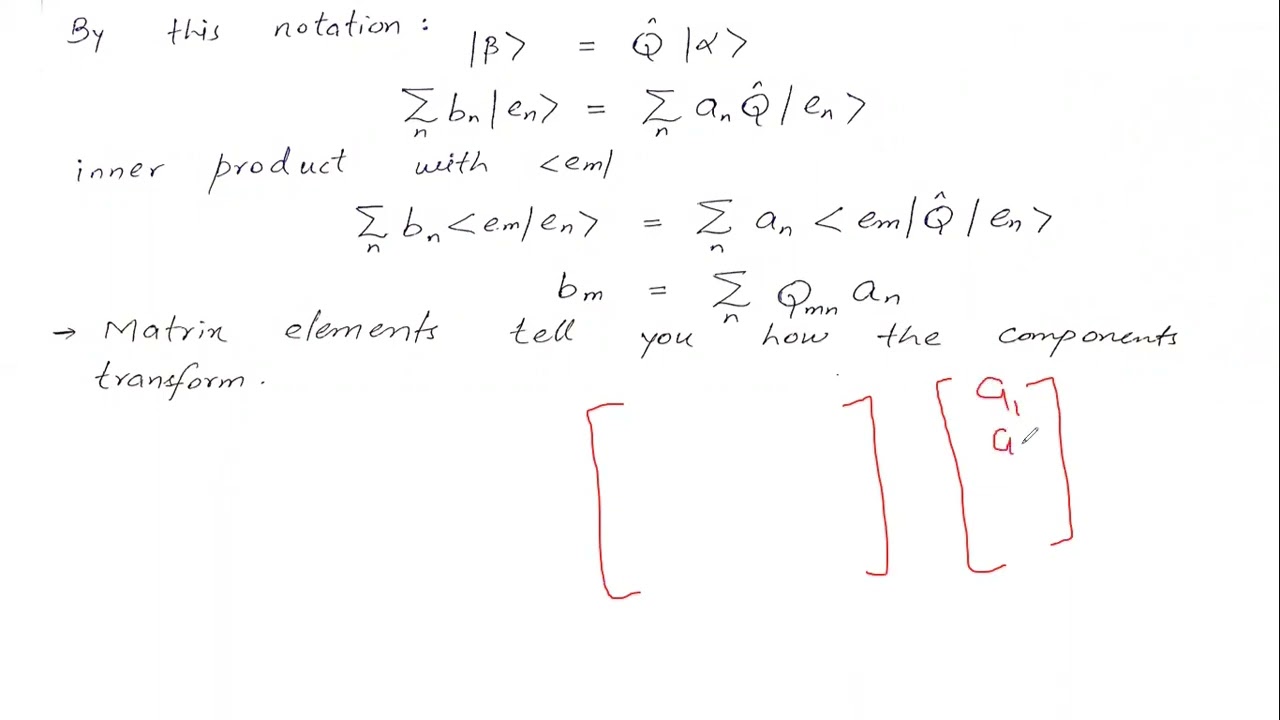 By this notation : |β> = Q̂ |α>
∑ₙ bₙ |eₙ> = ∑ₙ aₙ Q̂ |eₙ>
inner product with <em|
∑ₙ bₙ <em|eₙ> = ∑ₙ aₙ <em|Q̂|eₙ>
bₘ = ∑ₙ Qₘₙ aₙ
→ Matrix elements tell you how the components
transform.
a₁
a